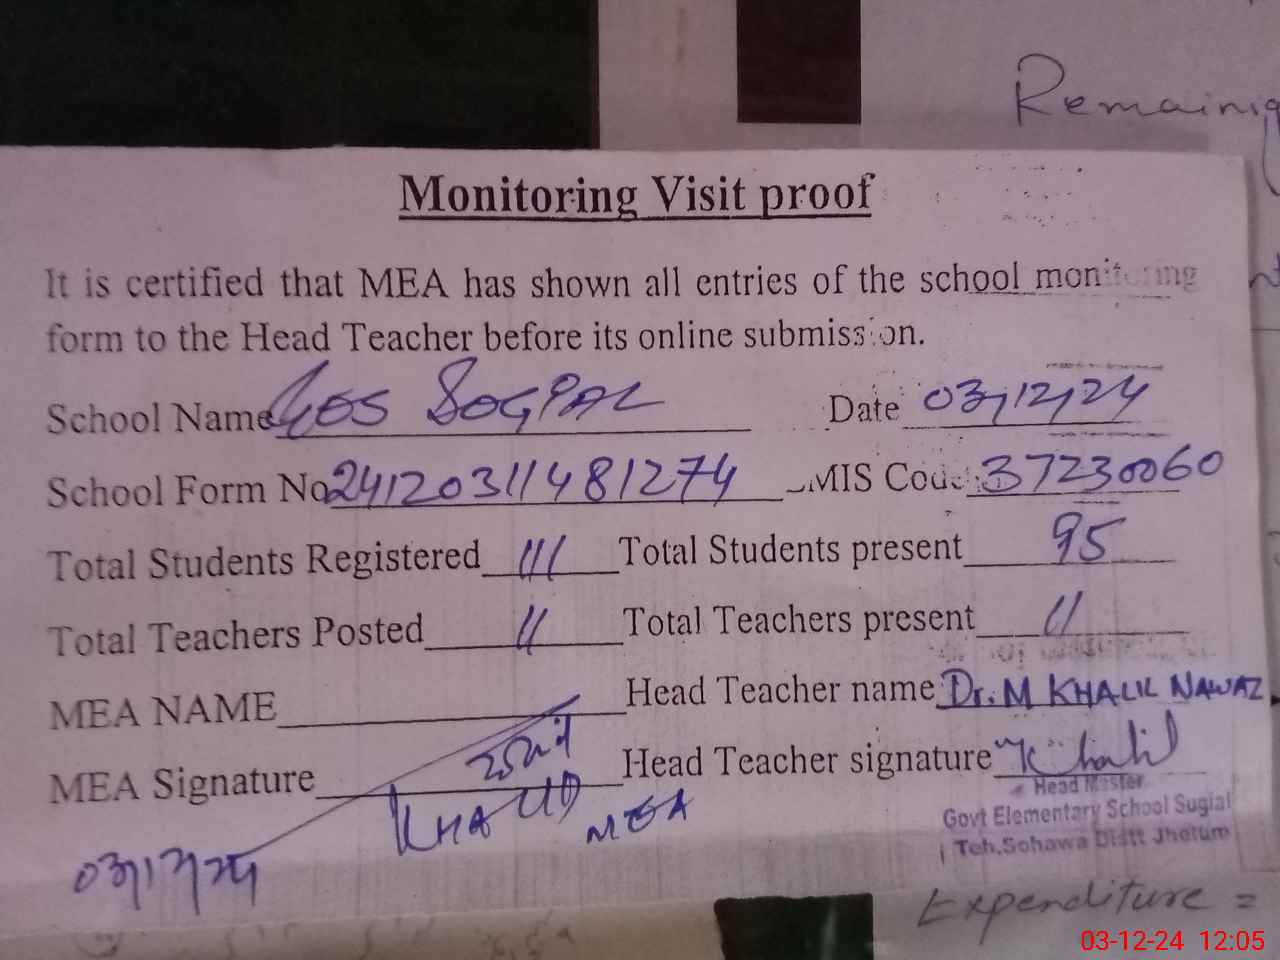 Remaining
Monitoring Visit proof
It is certified that MEA has shown all entries of the school monitoring
form to the Head Teacher before its online submission.
School Name GES SOGPAL Date 03/12/24
School Form No 24120311481274 MIS Code 37230060
Total Students Registered 111 Total Students present 95
Total Teachers Posted 11 Total Teachers present 11
MEA NAME Head Teacher name Dr. M KHALIL NAWAZ
MEA Signature Head Teacher signature Khalil
KHALID MEA
03/12/24
Head Master
Govt Elementary School Sugial
Teh. Sohawa Distt Jhelum
Expenditure =
03-12-24 12:05